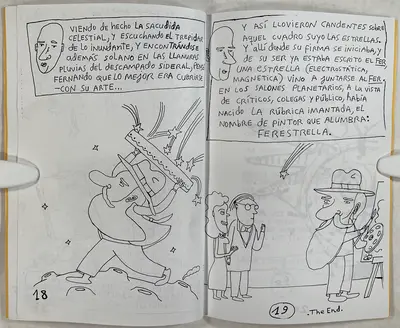 VIENDO DE HECHO LA SACUDIDA
CELESTIAL, Y ESCUCHANDO EL TREPIDAR
DE LO INUNDANTE, Y ENCONTRÁNDOSE
ADEMÁS SOLANO EN LAS LLANURAS
PLUVIAS DEL DESCAMPADO SIDERAL, PENSÓ
FERNANDO QUE LO MEJOR ERA CUBRIRSE
-CON SU ARTE...
18
Y ASÍ LLOVIERON CANDENTES SOBRE
AQUEL CUADRO SUYO LAS ESTRELLAS.
Y allí donde SU FIRMA SE INICIABA, Y
DE SU SER YA ESTABA ESCRITO EL FER
UNA ESTRELLA (ELECTROSTÁTICA,
MAGNÉTICA) VINO A JUNTARSE AL FER,
EN LOS SALONES PLANETARIOS, A LA VISTA
DE CRÍTICOS, COLEGAS Y PÚBLICO, HABÍA
NACIDO LA RÚBRICA IMANTADA, EL
NOMBRE DE PINTOR QUE ALUMBRA:
FERESTRELLA.
19
.The End.